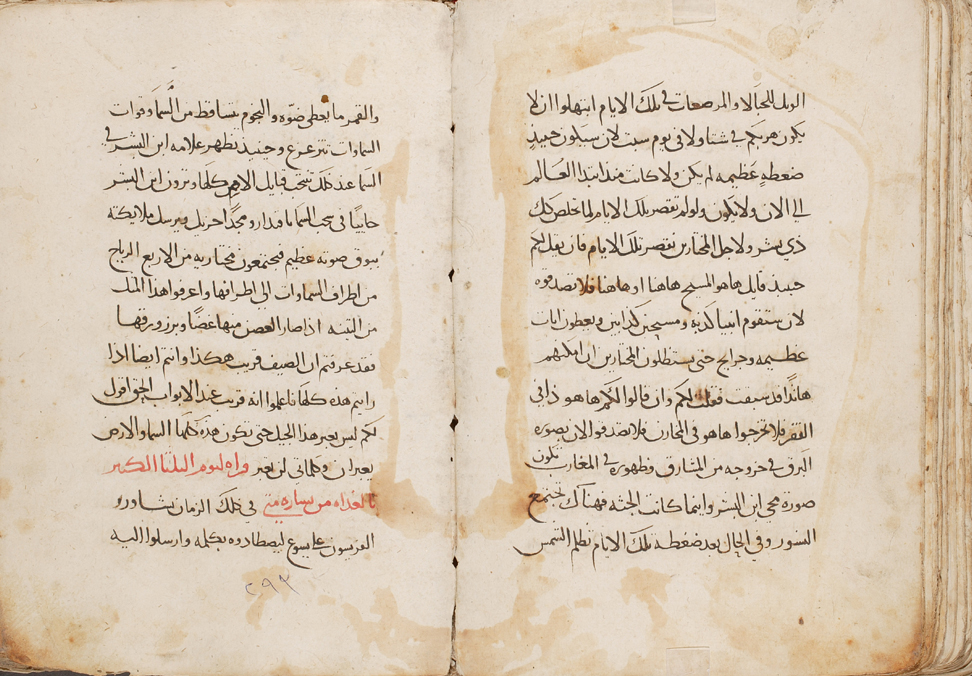 الويل للحبالا والمرضعات في تلك الايام ابتهلوا ان لا
يكون هربكم في شتا ولا في يوم سبت لان سيكون حينيذ
ضغطه عظيمه لم يكن ولا كانت منذ ابتدا العالم
الي الان ولا يكون ولو لم تقصر تلك الايام لما خلص كل
ذي بشر ولاجل المختارين تقصر تلك الايام فان يقل لكم
حينيذ قايل ها هو المسيح هاهنا او هاهنا فلا تصدقوه
لان ستقوم انبيا كدبه ومسيحين كدابين ويعطون ايات
عظيمه وجرايح حتي يستظلون المختارين ان امكنهم
هانذا قد سبقت فقلت لكم وان قالوا لكم ها هو ذا في
القفر فلا تخرجوا ها هو في المخازن فلا تصدقوا لان بصوره
البرق في خروجه من المشارق وظهوره في المغارب تكون
صورة مجي ابن البشر واينما كانت الجثه فهناك تجتمع
النسور وفي الحال بعد ضغطة تلك الايام تظلم الشمس
والقمر ما يعطي ضوه والنجوم تساقط من السما وقوات
السماوات تتزعزع وحينيذ تظهر علامه ابن البشر في
السما عند ذلك تنتحب قبايل الامم كلها ويرون ابن البشر
جاييا في سحب السما بمقدار ومجدا جزيل ويرسل ملايكته
ببوق صوته عظيم فيجتمعون مختاريه من الاربع الرياح
من اطراف السماوات الي اطرافها واعرفوا هذا المثل
من التينه اذا صار الغصن منها غضا وبرز ورقها
فقد عرفتم ان الصيف قريب هكذا وانتم ايضا اذا
رايتم هذه كلها فاعلموا انه قريب عند الابواب الحق اقول
لكم ليس يعبر هذا الجيل حتي تكون هذه كلها السما والارض
يعبران وكلماتي لن يعبر قراه ليوم الثلثا الكبير
بالغداه من بشاره متي في ذلك الزمان تشاورر
الفريسون علي يسوع ليصطادوه بكلمه وارسلوا اليه
٢٩٣